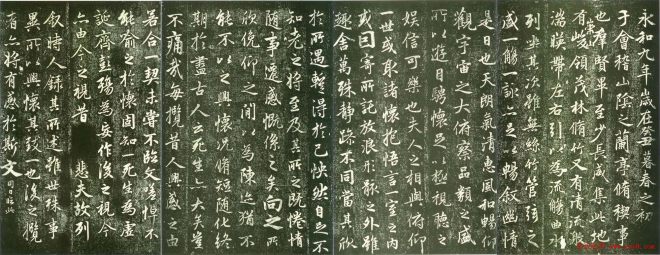 永和九年歲在癸丑暮春之初
于會稽山陰之蘭亭脩稧事
也羣賢畢至少長咸集此地
有崇山峻領茂林脩竹又有清流激
湍暎帶左右引以為流觴曲水
列坐其次雖無絲竹管弦之
盛一觴一詠亦足以暢敘幽情
是日也天朗氣清惠風和暢仰
觀宇宙之大俯察品類之盛
所以遊目騁懷足以極視聽之
娛信可樂也夫人之相與俯仰
一世或取諸懷抱悟言一室之內
或因寄所託放浪形骸之外雖
趣舍萬殊靜躁不同當其欣
於所遇蹔得於己怏然自足不
知老之將至及其所之既惓情
隨事遷感慨係之矣向之所
欣俛仰之間以為陳迹猶不
能不以之興懷況脩短隨化終
期於盡古人云死生亦大矣豈
不痛哉每攬昔人興感之由
若合一契未嘗不臨文嗟悼不
能喻之於懷固知一死生為虛
誕齊彭殤為妄作後之視今
亦由今之視昔 悲夫故列
敘時人錄其所述雖世殊事
異所以興懷其致一也後之攬
者亦將有感於斯文